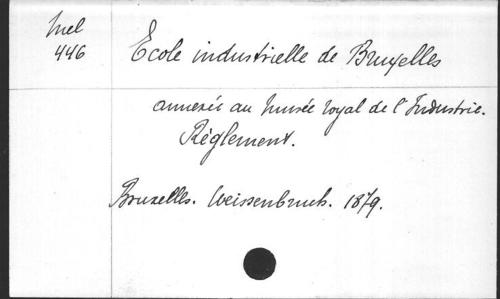 Mel
446
Ecole industrielle de Bruxelles
annexée au Musée royal de l'Industrie.
Règlement.
Bruxelles. Weissenbruch. 1879.